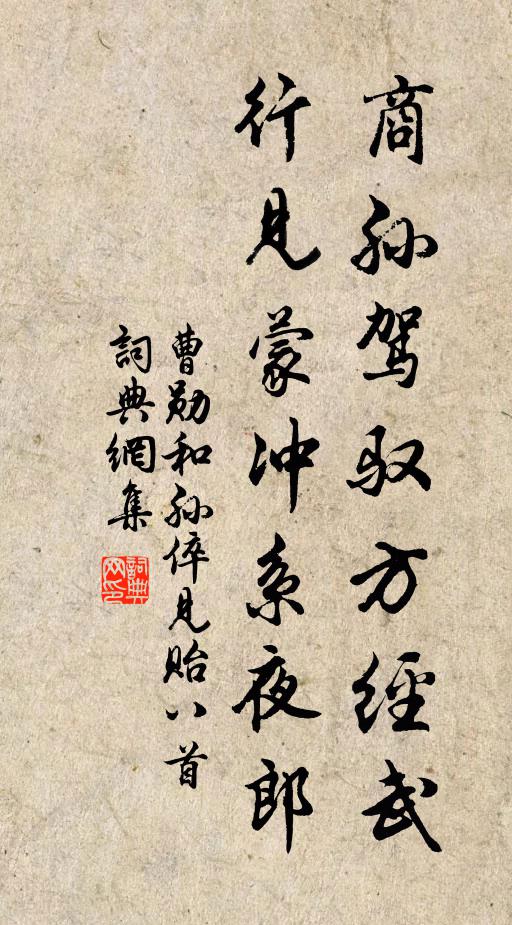 商孙驾驭方經武
行見蒙冲系夜郎
曹勋和孙倅見贻八首
詞典網集
詞典网印